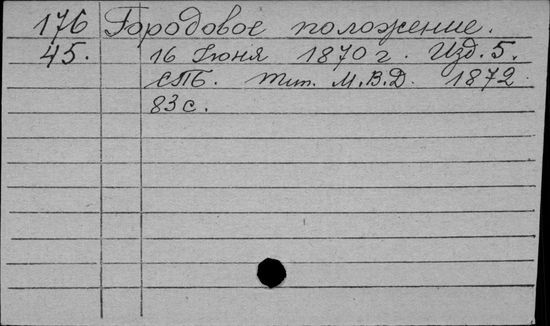 176 Городовое положение.
45. 16 Июня 1870 г. Изд. 5.
СПБ. Тип. М.В.Д. 1872.
83 с.